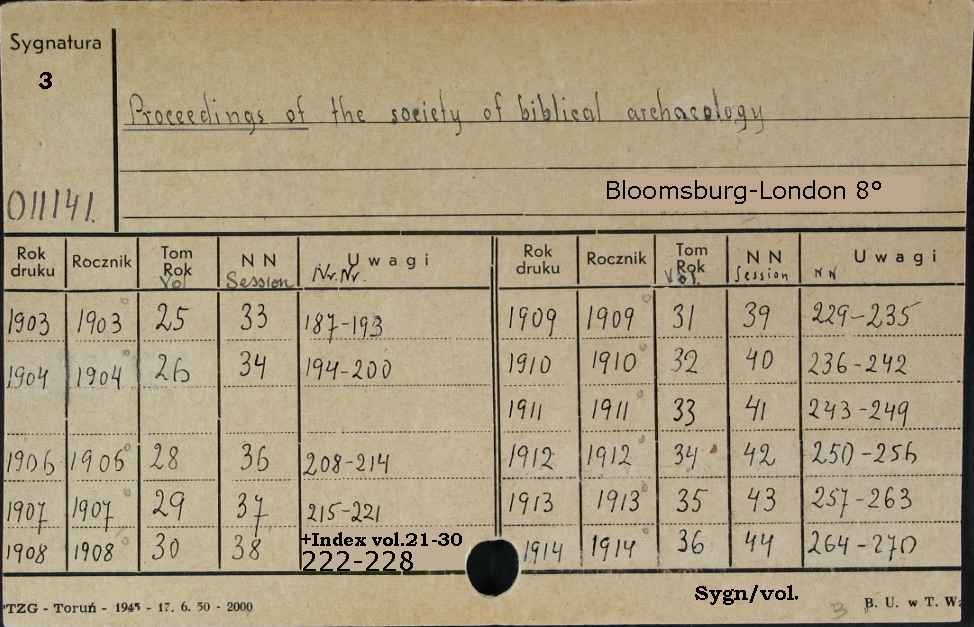 Sygnatura
3
Proceedings of the society of biblical archaeology
Bloomsburg-London 8°
011141.
Rok druku Rocznik Tom Rok Vol N N Session Uwagi Nr. Nr. Rok druku Rocznik Tom Rok Vol. N N Session Uwagi N N
1903 1903 25 33 187-193 1909 1909 31 39 229-235
1904 1904 26 34 194-200 1910 1910 32 40 236-242
1911 1911 33 41 243-249
1906 1906 28 36 208-214 1912 1912 34 42 250-256
1907 1907 29 37 215-221 1913 1913 35 43 257-263
+Index vol.21-30
1908 1908 30 38 222-228 1914 1914 36 44 264-270
Sygn/vol.
PTZG - Toruń - 1945 - 17. 6. 50 - 2000 B. U. w T. W